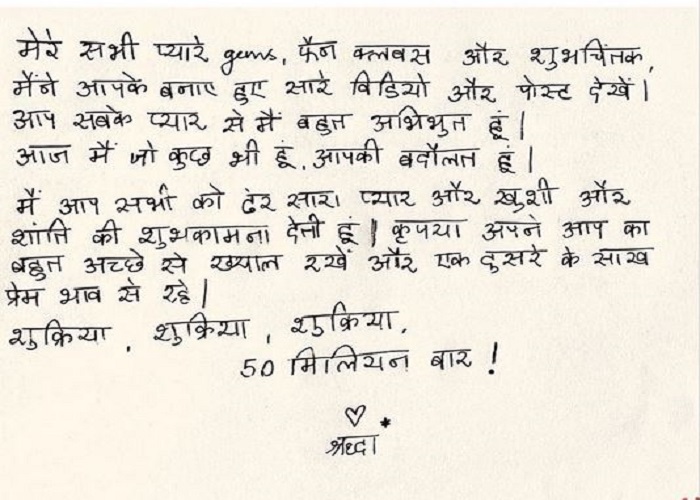 मेरे सभी प्यारे gems, फैन क्लबस और शुभचिंतक,
मैंने आपके बनाए हुए सारे विडियो और पोस्ट देखें।
आप सबके प्यार से मैं बहुत अभिभुत हूं।
आज मैं जो कुछ भी हूं, आपकी बदौलत हूं।
मैं आप सभी को ढेर सारा प्यार और खुशी और
शांति की शुभकामना देती हूं। कृपया अपने आप का
बहुत अच्छे से ख्याल रखें और एक दुसरे के साथ
प्रेम भाव से रहे।
शुक्रिया, शुक्रिया, शुक्रिया,
50 मिलियन बार!
श्रध्दा